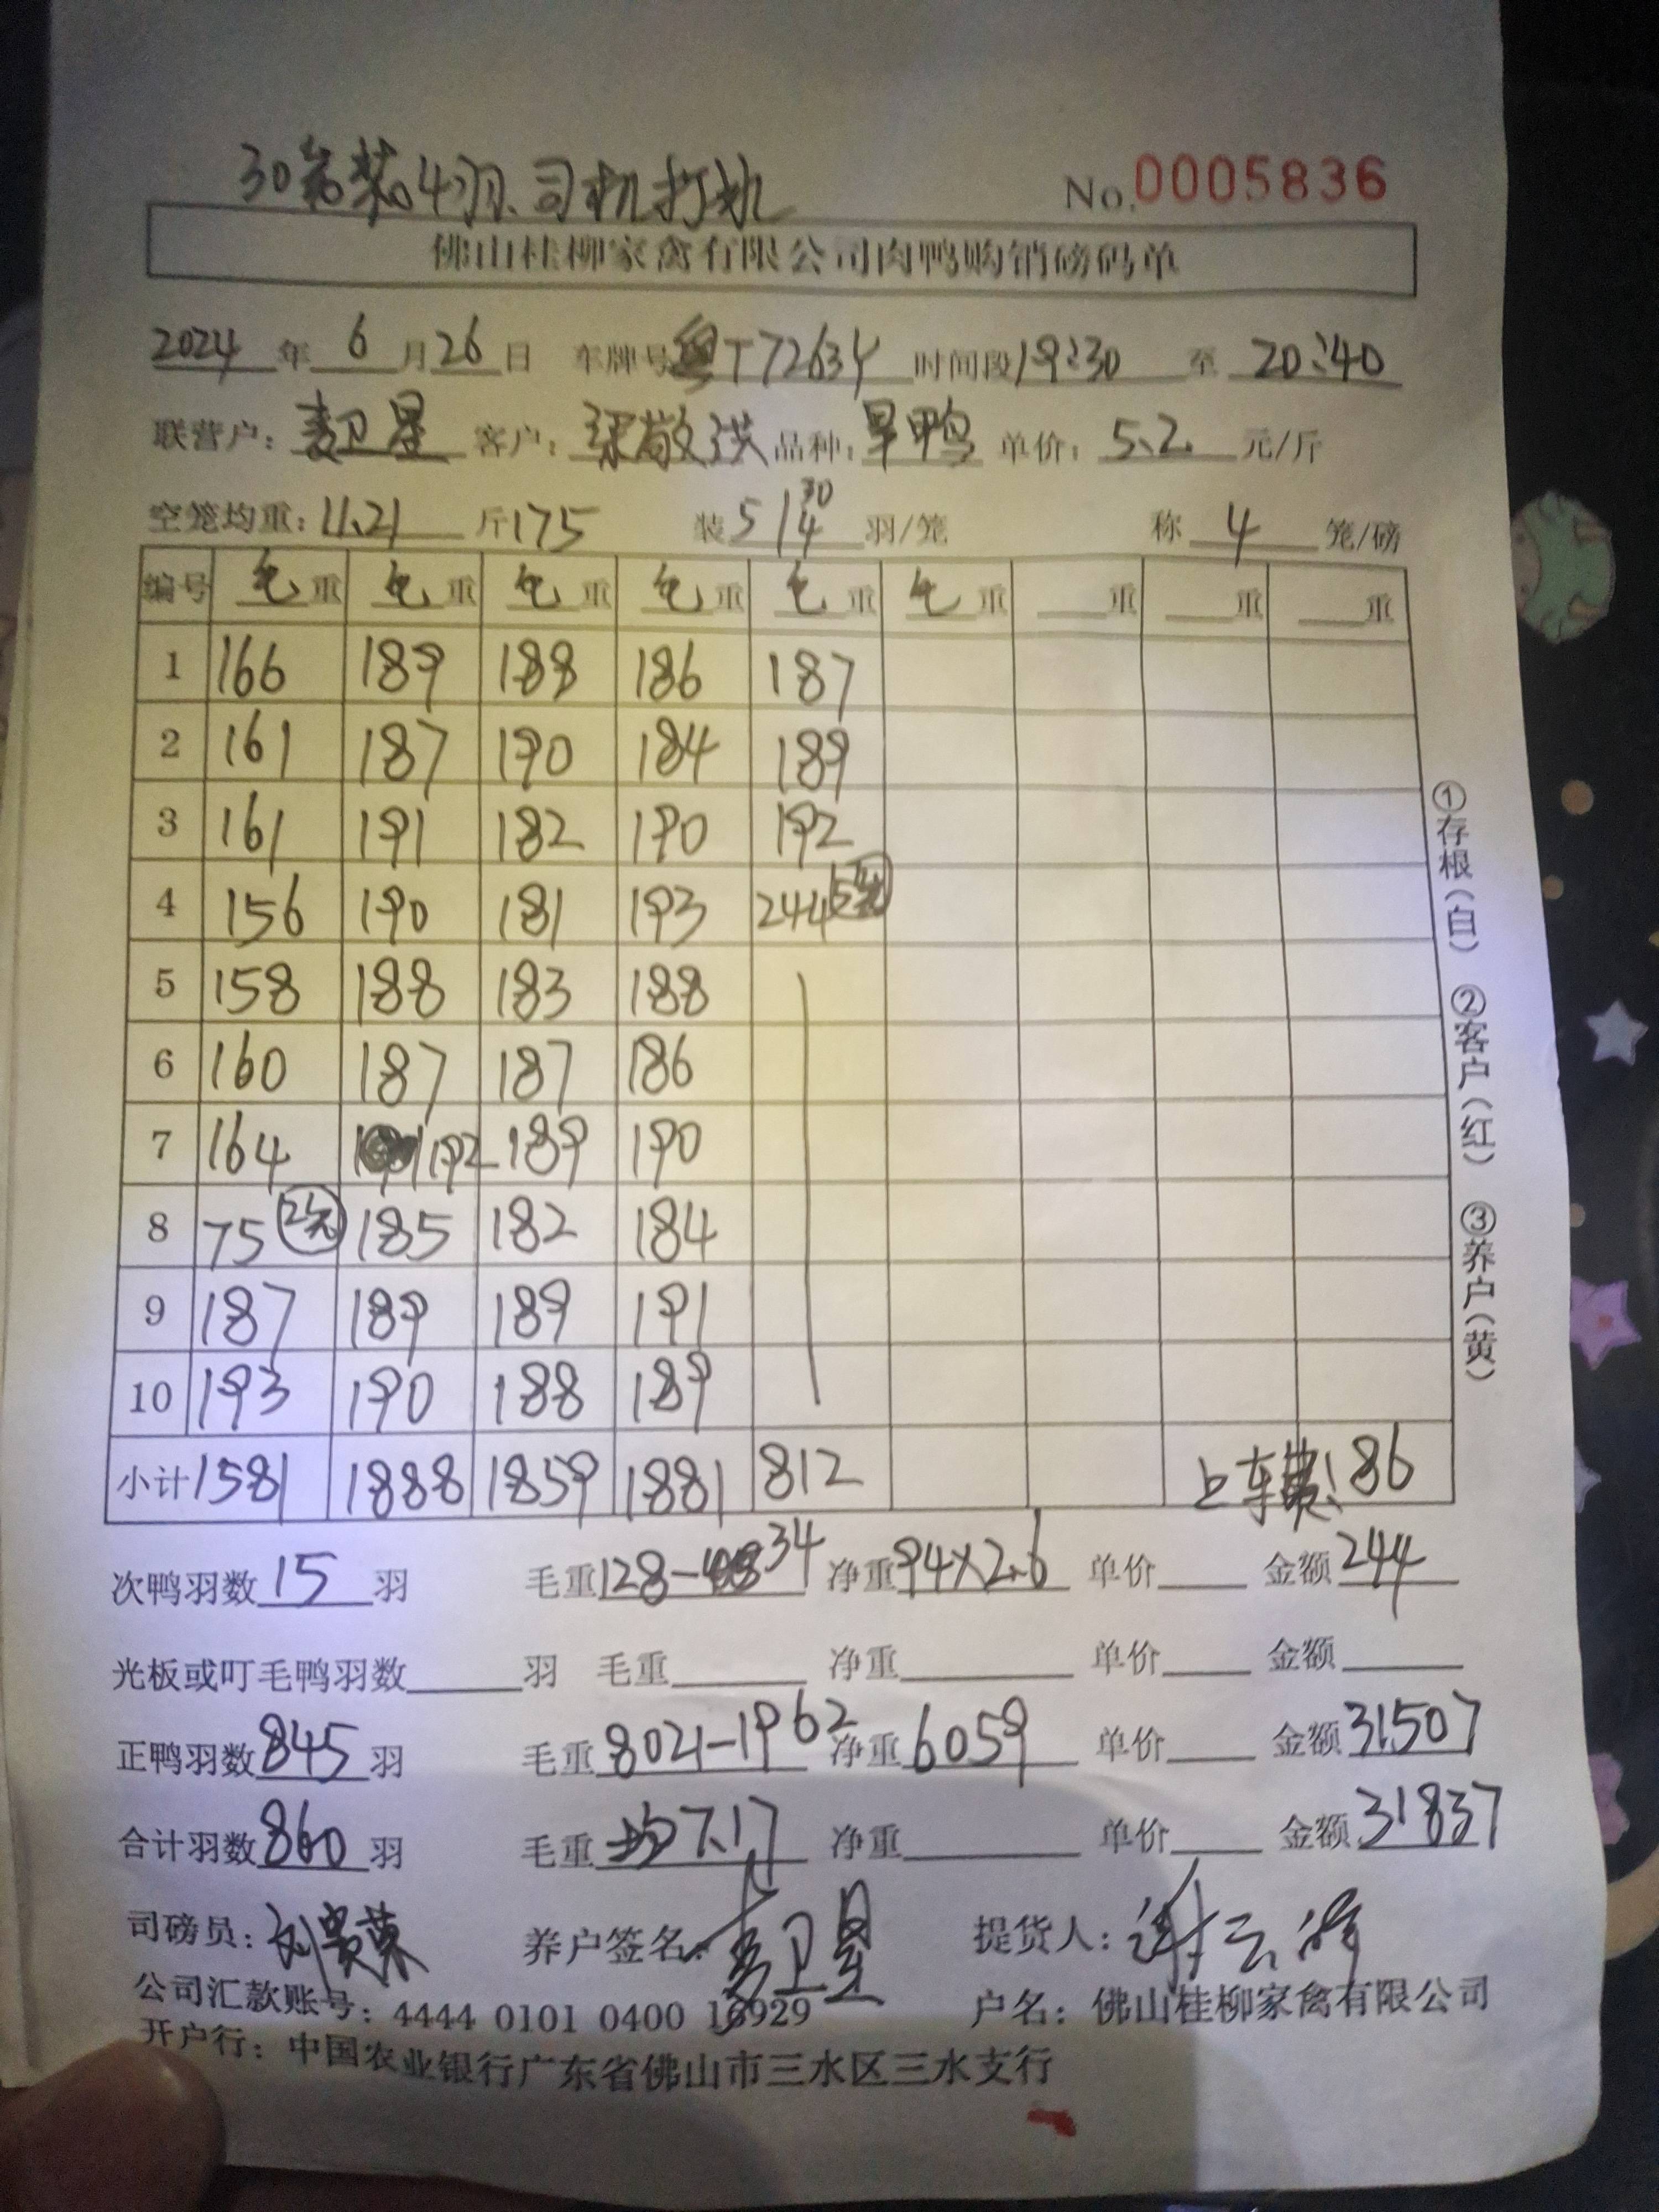 30笼装4羽.司机打水
No.0005836
佛山桂柳家禽有限公司肉鸭购销磅码单
2024年6月26日 车牌号粤T7263Y 时间段19:30至20:40
联营户：麦卫星 客户：梁敬洪 品种：旱鸭 单价：5.2元/斤
空笼均重：11.21斤175 装5/4 30羽/笼 称4笼/磅
编号 毛重 毛重 毛重 毛重 毛重 毛重 重 重 重
1 166 189 188 186 187
2 161 187 190 184 189
3 161 191 182 190 192
4 156 190 181 193 244 5笼
5 158 188 183 188
6 160 187 187 186
7 164 192 189 190
8 75 2笼 185 182 184
9 187 189 189 191
10 193 190 188 189
小计 1581 1888 1859 1881 812 上车费：86
次鸭羽数15羽 毛重128-34 净重94×2.6 单价 金额244
光板或叮毛鸭羽数 羽 毛重 净重 单价 金额
正鸭羽数845羽 毛重8021-1962 净重6059 单价 金额31507
合计羽数860羽 毛重均7.17 净重 单价 金额31837
司磅员：刘贵荣 养户签名：麦卫星 提货人：谢云
公司汇款账号：4444 0101 0400 16929 户名：佛山桂柳家禽有限公司
开户行：中国农业银行广东省佛山市三水区三水支行
①存根（白） ②客户（红） ③养户（黄）